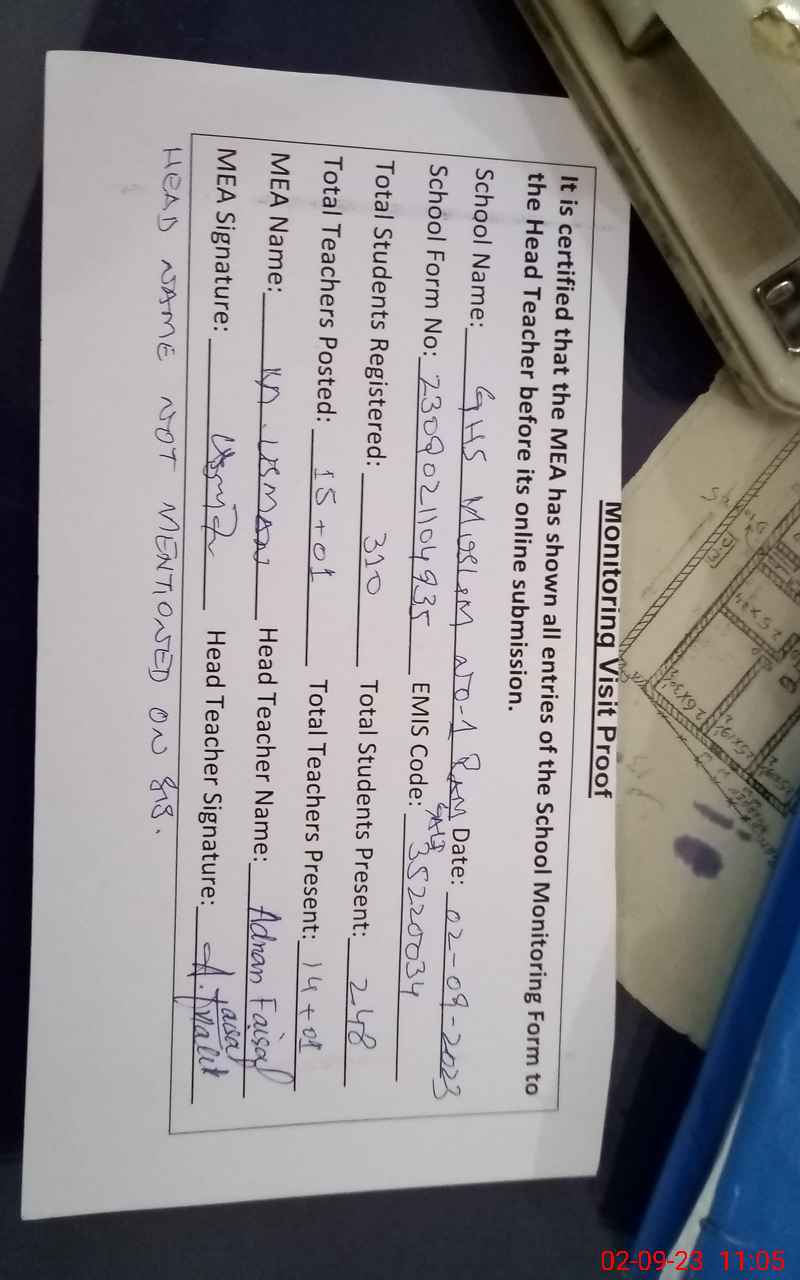 Monitoring Visit Proof
It is certified that the MEA has shown all entries of the School Monitoring Form to
the Head Teacher before its online submission.
School Name: GHS MUSLIM NO-1 RAM GALI Date: 02-09-2023
School Form No: 2309021104935 EMIS Code: 35220034
Total Students Registered: 310 Total Students Present: 248
Total Teachers Posted: 15+01 Total Teachers Present: 14+01
MEA Name: M. USMAN Head Teacher Name: Adnan Faisal
MEA Signature: Head Teacher Signature: A. Faisal
HEAD NAME NOT MENTIONED ON SIS.
02-09-23 11:05